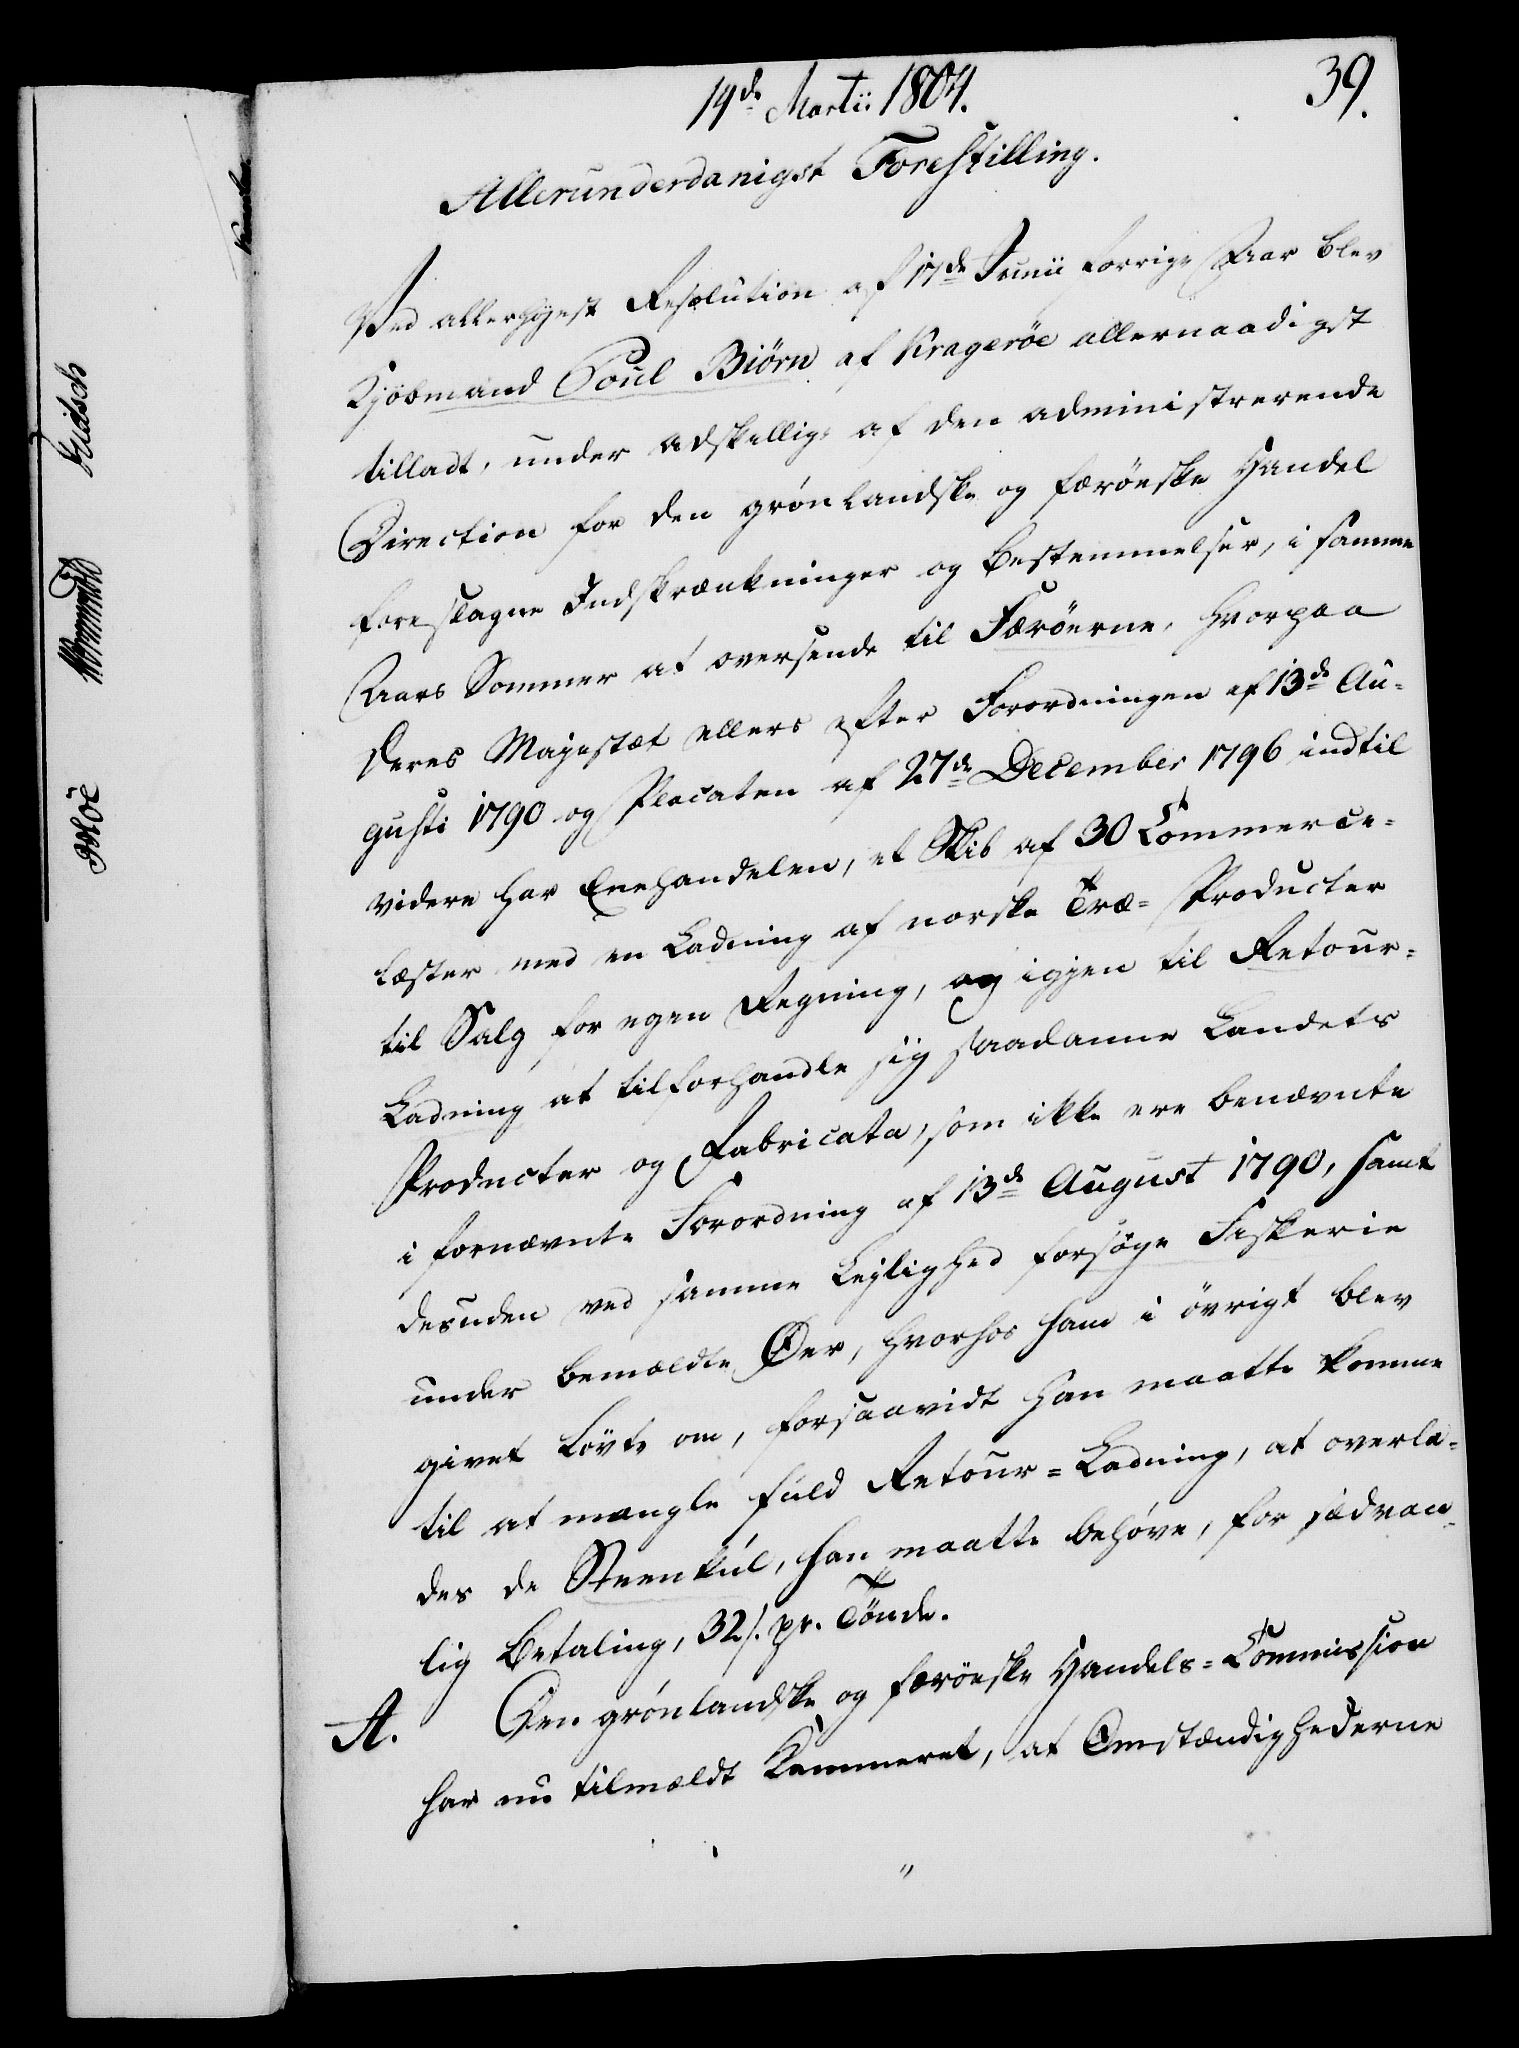 19de Martii 1804.
39.
Allerunderdanigst Forestilling.
Ved allerhøyest Resolution af 17de Junii forrige Aar blev
Kjöbmand Poul Biörn af Krageröe allernaadigst
tilladt, under adskellige af den administrerende
Direction for den grönlandske og færöeske Handel
foreslagne Indskrænkninger og Bestemmelser, i samme
Aars Sommer at oversende til Færöerne, hvorpaa
Deres Majestæt ellers efter Forordningen af 13de Au-
gusti 1790 og Placaten af 27de December 1796 indtil
videre har Enehandelen, et Skib af 30 Commerce-
læster med en Ladning af norske Træ-Producter
til Salg for egen Regning, og igjen til Retour-
Ladning at tilforhandle sig saadanne Landets
Producter og Fabricata, som ikke ere benævnte
i fornævnte Forordning af 13de August 1790, samt
desuden ved samme Lejlighed forsöge Fiskerie
under bemældte Öer, hvorhos ham i övrigt blev
givet Lövte om, forsaavidt han maatte komme
til at mangle fuld Retour-Ladning, at overla-
des de Steenkul, han maatte behöve, for sædvan-
lig Betaling, 32 s. pr. Tönde.
A. Den grönlandske og færöeske Handels-Commission
har nu tilmældt Kammeret, at Omstændighederne